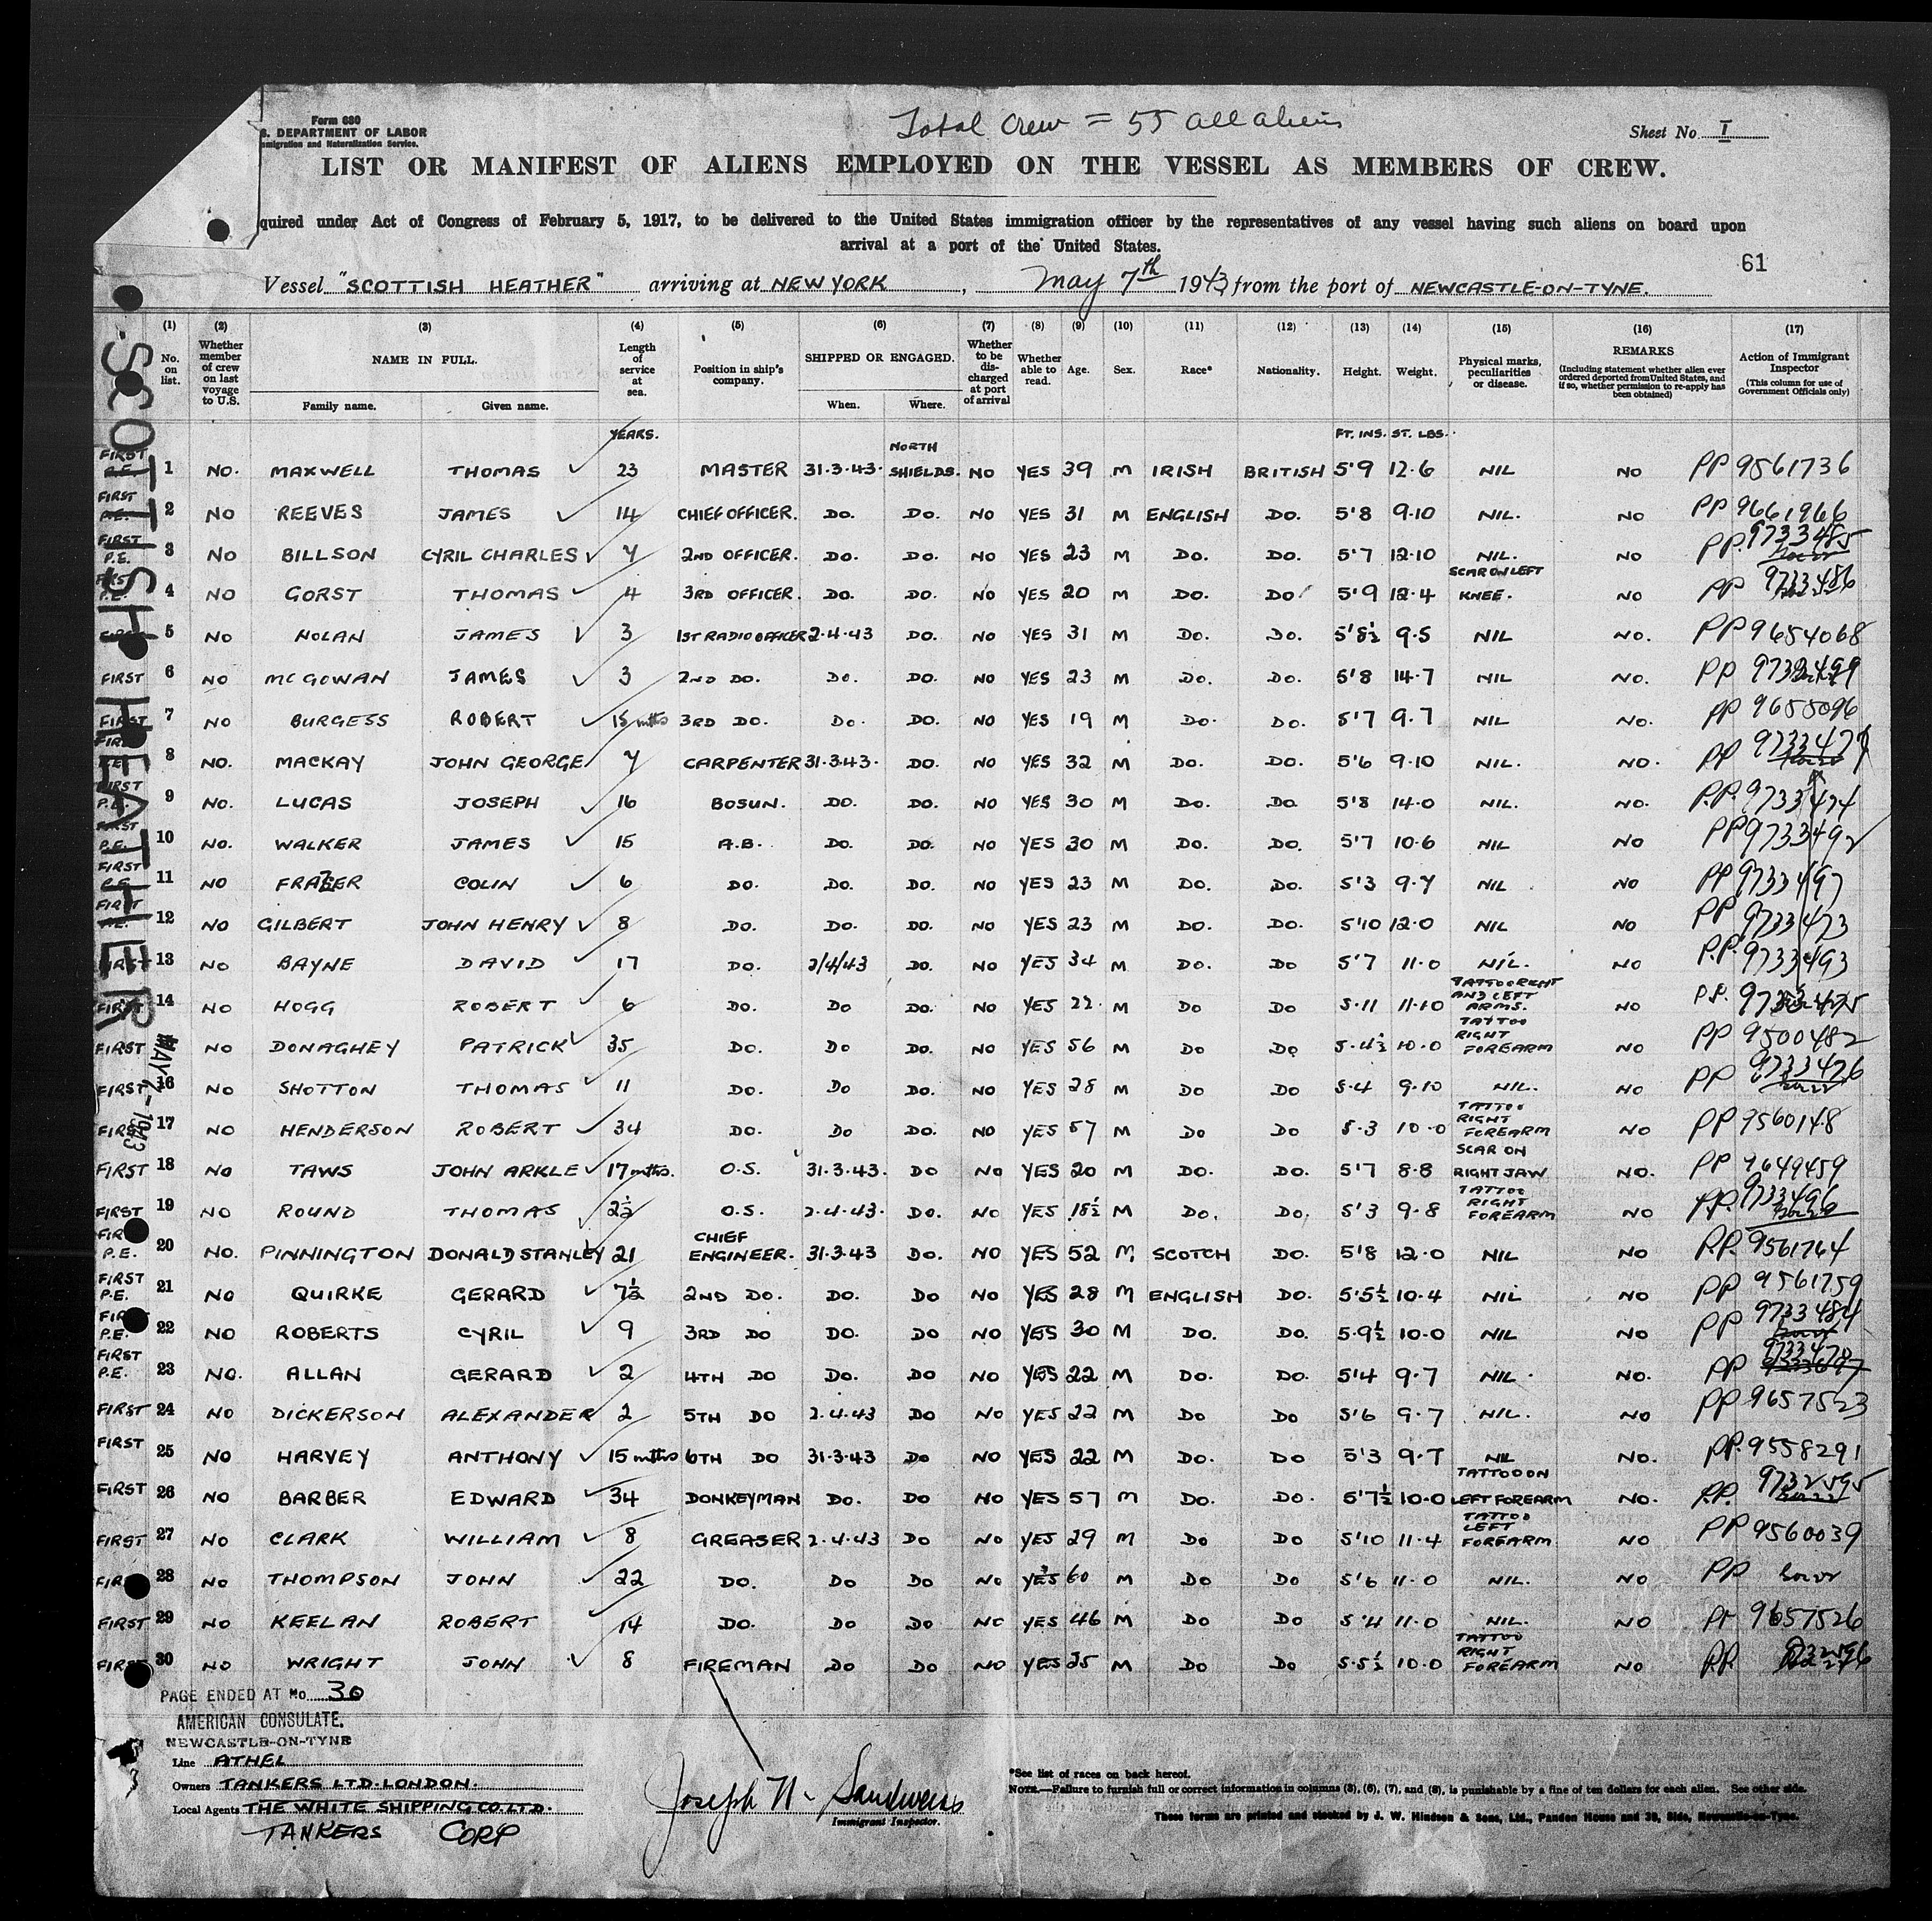 Form 680
S. DEPARTMENT OF LABOR
migration and Naturalization Service.
Total Crew = 55 all aliens
Sheet No I
LIST OR MANIFEST OF ALIENS EMPLOYED ON THE VESSEL AS MEMBERS OF CREW.
quired under Act of Congress of February 5, 1917, to be delivered to the United States immigration officer by the representatives of any vessel having such aliens on board upon
arrival at a port of the United States.
61
Vessel "SCOTTISH HEATHER" arriving at NEW YORK, May 7th 1943, from the port of NEWCASTLE-ON-TYNE.
(1) (2) (3) (4) (5) (6) (7) (8) (9) (10) (11) (12) (13) (14) (15) (16) (17)
No. on list. Whether member of crew on last voyage to U.S. NAME IN FULL. Family name. Given name. Length of service at sea. Position in ship's company. SHIPPED OR ENGAGED. When. Where. Whether to be discharged at port of arrival Whether able to read. Age. Sex. Race* Nationality. Height. Weight. Physical marks, peculiarities or disease. REMARKS (Including statement whether alien ever ordered deported from United States, and if so, whether permission to re-apply has been obtained) Action of Immigrant Inspector (This column for use of Government Officials only)
YEARS. FT. INS. ST. LBS.
FIRST P.E. 1 NO. MAXWELL THOMAS 23 MASTER 31.3.43. NORTH SHIELDS. NO YES 39 M IRISH BRITISH 5'9 12.6 NIL NO PP 9561736
FIRST P.E. 2 NO REEVES JAMES 14 CHIEF OFFICER. DO. DO. NO YES 31 M ENGLISH DO. 5'8 9.10 NIL. NO PP 9661966
FIRST P.E. 3 NO BILLSON CYRIL CHARLES 4 2ND OFFICER. DO. DO. NO YES 23 M DO. DO. 5'7 12.10 NIL. NO PP. 9733485
FIRST P.E. 4 NO GORST THOMAS 4 3RD OFFICER. DO. DO. NO YES 20 M DO. DO 5'9 12.4 SCAR ON LEFT KNEE. NO PP 9733486
FIRST 5 NO NOLAN JAMES 3 1ST RADIO OFFICER 2.4.43 DO. NO YES 31 M DO. DO. 5'8½ 9.5 NIL NO. PP 9654068
FIRST 6 NO MCGOWAN JAMES 3 2ND DO. DO. DO. NO YES 23 M DO. DO. 5'8 14.7 NIL NO. PP
FIRST 7 NO BURGESS ROBERT 15 mths 3RD DO. DO. DO. NO YES 19 M DO. DO. 5'7 9.7 NIL NO. PP 9655096
FIRST P.E. 8 NO. MACKAY JOHN GEORGE 4 CARPENTER 31.3.43. DO. NO YES 32 M DO. DO. 5'6 9.10 NIL. NO. PP
FIRST P.E. 9 NO. LUCAS JOSEPH 16 BOSUN. DO. DO. NO YES 30 M DO. DO 5'8 14.0 NIL. NO. P.P. 9733474
FIRST P.E. 10 NO. WALKER JAMES 15 A.B. DO. DO. NO YES 30 M DO. DO. 5'7 10.6 NIL NO PP 9733492
FIRST P.E. 11 NO FRAZER COLIN 6 DO. DO. DO. NO YES 23 M DO. DO. 5'3 9.4 NIL NO PP 9733497
FIRST P.E. 12 NO GILBERT JOHN HENRY 8 DO. DO. DO. NO YES 23 M DO. DO. 5'10 12.0 NIL NO PP 9733473
FIRST 13 NO BAYNE DAVID 17 DO. 2/4/43 DO. NO YES 34 M DO. DO 5'7 11.0 NIL. NO P.P. 9733493
FIRST 14 NO HOGG ROBERT 6 DO. DO DO. NO YES 22 M DO DO 5.11 11.10 TATTOO RIGHT AND LEFT ARMS. NO P.P.
FIRST NO DONAGHEY PATRICK 35 DO. DO DO. NO YES 56 M DO DO 5.4½ 10.0 TATTOO RIGHT FOREARM NO PP 9500482
FIRST 16 NO SHOTTON THOMAS 11 DO. DO DO. NO YES 28 M DO DO 5.4 9.10 NIL. NO PP 9733476
FIRST 17 NO HENDERSON ROBERT 34 DO. DO DO. NO YES 57 M DO DO 5.3 10.0 TATTOO RIGHT FOREARM NO PP 9560148
FIRST 18 NO TAWS JOHN ARKLE 17 mths. O.S. 31.3.43. DO NO YES 20 M DO. DO. 5'7 8.8 SCAR ON RIGHT JAW NO. PP 9649459
FIRST 19 NO ROUND THOMAS 2½ O.S. 2.4.43. DO. NO YES 18½ M DO. DO. 5'3 9.8 TATTOO RIGHT FOREARM NO P.P. 9733496
FIRST P.E. 20 NO. PINNINGTON DONALD STANLEY 21 CHIEF ENGINEER. 31.3.43 DO. NO YES 52 M SCOTCH DO. 5'8 12.0 NIL NO P.P. 9561764
FIRST P.E. 21 NO QUIRKE GERARD 7½ 2ND DO. DO. DO NO YES 28 M ENGLISH DO. 5'5½ 10.4 NIL NO PP 9561759
FIRST P.E. 22 NO ROBERTS CYRIL 9 3RD DO DO. DO NO YES 30 M DO. DO. 5.9½ 10.0 NIL NO PP 9733484
FIRST P.E. 23 NO. ALLAN GERARD 2 4TH DO DO. DO NO YES 22 M DO. DO. 5'4 9.7 NIL. NO. PP
FIRST 24 NO DICKERSON ALEXANDER 2 5TH DO 2.4.43 DO NO YES 22 M DO DO 5'6 9.7 NIL. NO PP 9657523
FIRST 25 NO HARVEY ANTHONY 15 mths 6TH DO 31.3.43 DO NO YES 22 M DO. DO 5'3 9.7 NIL NO. PP. 9558291
FIRST 26 NO BARBER EDWARD 34 DONKEYMAN DO. DO NO YES 57 M DO. DO. 5'7½ 10.0 TATTOO ON LEFT FOREARM NO. P.P. 9732595
FIRST 27 NO CLARK WILLIAM 8 GREASER 2.4.43 DO NO YES 29 M DO DO 5'10 11.4 TATTOO LEFT FOREARM NO PP 9560039
FIRST 28 NO THOMPSON JOHN 22 DO. DO DO NO YES 60 M DO DO 5'6 11.0 NIL. NO PP
FIRST 29 NO KEELAN ROBERT 14 DO. DO DO NO YES 46 M DO DO 5'4 11.0 NIL. NO PP 9657526
FIRST 30 NO WRIGHT JOHN 8 FIREMAN DO DO NO YES 25 M DO DO 5.5½ 10.0 TATTOO RIGHT FOREARM NO P.P.
SCOTTISH HEATHER
MAY 7 - 1943
PAGE ENDED AT No 30
AMERICAN CONSULATE.
NEWCASTLE-ON-TYNE
Line ATHEL
Owners TANKERS LTD. LONDON.
Local Agents THE WHITE SHIPPING CO. LTD.
TANKERS CORP
Joseph N. Sandweiss
Immigrant Inspector.
*See list of races on back hereof.
NOTE.—Failure to furnish full or correct information in columns (3), (6), (7), and (8), is punishable by a fine of ten dollars for each alien. See other side.
These forms are printed and stocked by J. W. Hindson & Sons, Ltd., Pandon House and 39, Side, Newcastle-on-Tyne.